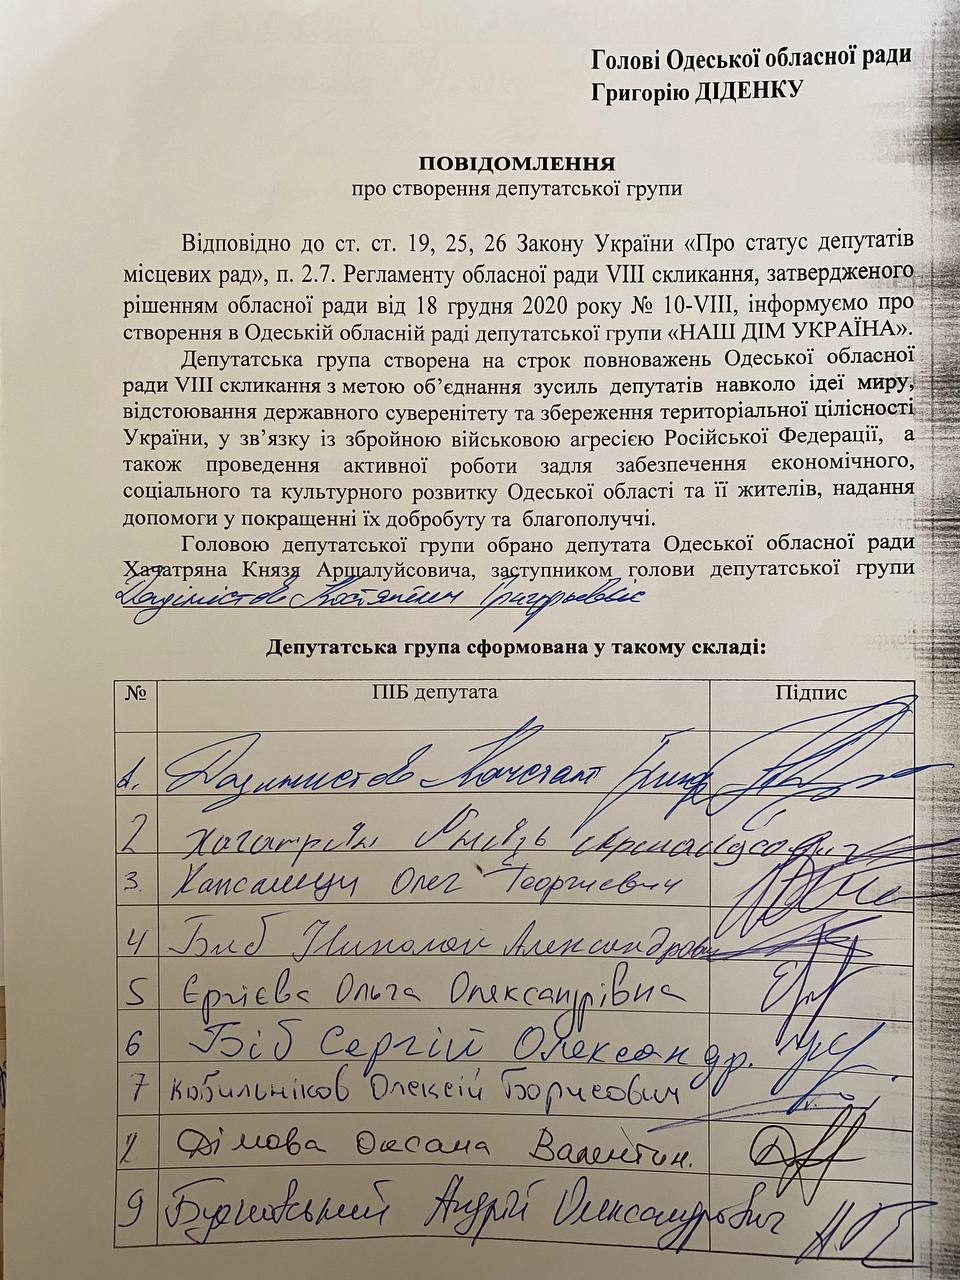 Голові Одеської обласної ради
Григорію ДІДЕНКУ
ПОВІДОМЛЕННЯ
про створення депутатської групи
Відповідно до ст. ст. 19, 25, 26 Закону України «Про статус депутатів
місцевих рад», п. 2.7. Регламенту обласної ради VIII скликання, затвердженого
рішенням обласної ради від 18 грудня 2020 року № 10-VIII, інформуємо про
створення в Одеській обласній раді депутатської групи «НАШ ДІМ УКРАЇНА».
Депутатська група створена на строк повноважень Одеської обласної
ради VIII скликання з метою об’єднання зусиль депутатів навколо ідеї миру,
відстоювання державного суверенітету та збереження територіальної цілісності
України, у зв’язку із збройною військовою агресією Російської Федерації, а
також проведення активної роботи задля забезпечення економічного,
соціального та культурного розвитку Одеської області та її жителів, надання
допомоги у покращенні їх добробуту та благополуччі.
Головою депутатської групи обрано депутата Одеської обласної ради
Хачатряна Князя Аршалуйсовича, заступником голови депутатської групи
Депутатська група сформована у такому складі:
№ ПІБ депутата Підпис
1.
2 Хачатрян Князь
3. Олег Георгиевич
4 Биб Николай Александрович
5 Єргієва Ольга Олександрівна
6 Біб Сергій Олександр.
7 Кобильніков Олексій Борисович
Дімова Оксана Валентин.
9 Андрій Олександрович